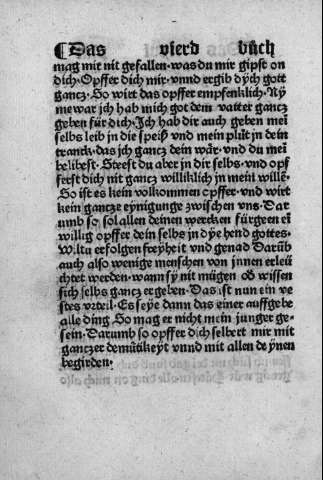 ¶ Das vierd bůch
mag mir nit gefallen. was du mir gipst on
dich. Opffer dich mir. vnnd ergib dych gott
gancz. So wirt das opffer empfenklich. Ny̅
me war ich hab mich got dem vatter gancz
geben für dich. Ich hab dir auch geben mei̅
selbs leib in die speiß vnd mein plůt in dein
tranck. das ich gancz dein wär. vnd du mei̅
belibest. Steest du aber in dir selbs. vnd opf
ferst dich nit gancz williklich in mein wille̅.
So ist es kein volkommen opffer. vnd wirt
kein gancze eynigunge zwischen vns. Dar
umb so sol allen deinen wercken fürgeen ei̅
willig opffer dein selbs in dye hend gottes.
Wiltu erfolgen freyheit vnd genad Darüb
auch also wenige menschen von jnnen erleü
chtet werden. wann sy nit mügen ob wissen
sich selbs gancz ergeben. Das ist nun ein ve
stes vrteil. Es seye dann das einer auffgebe
alle ding. So mag er nicht mein junger ge-
sein. Darumb so opffer dich selbert mir mit
ganczer demütikeyt vnnd mit allen deynen
begirden.